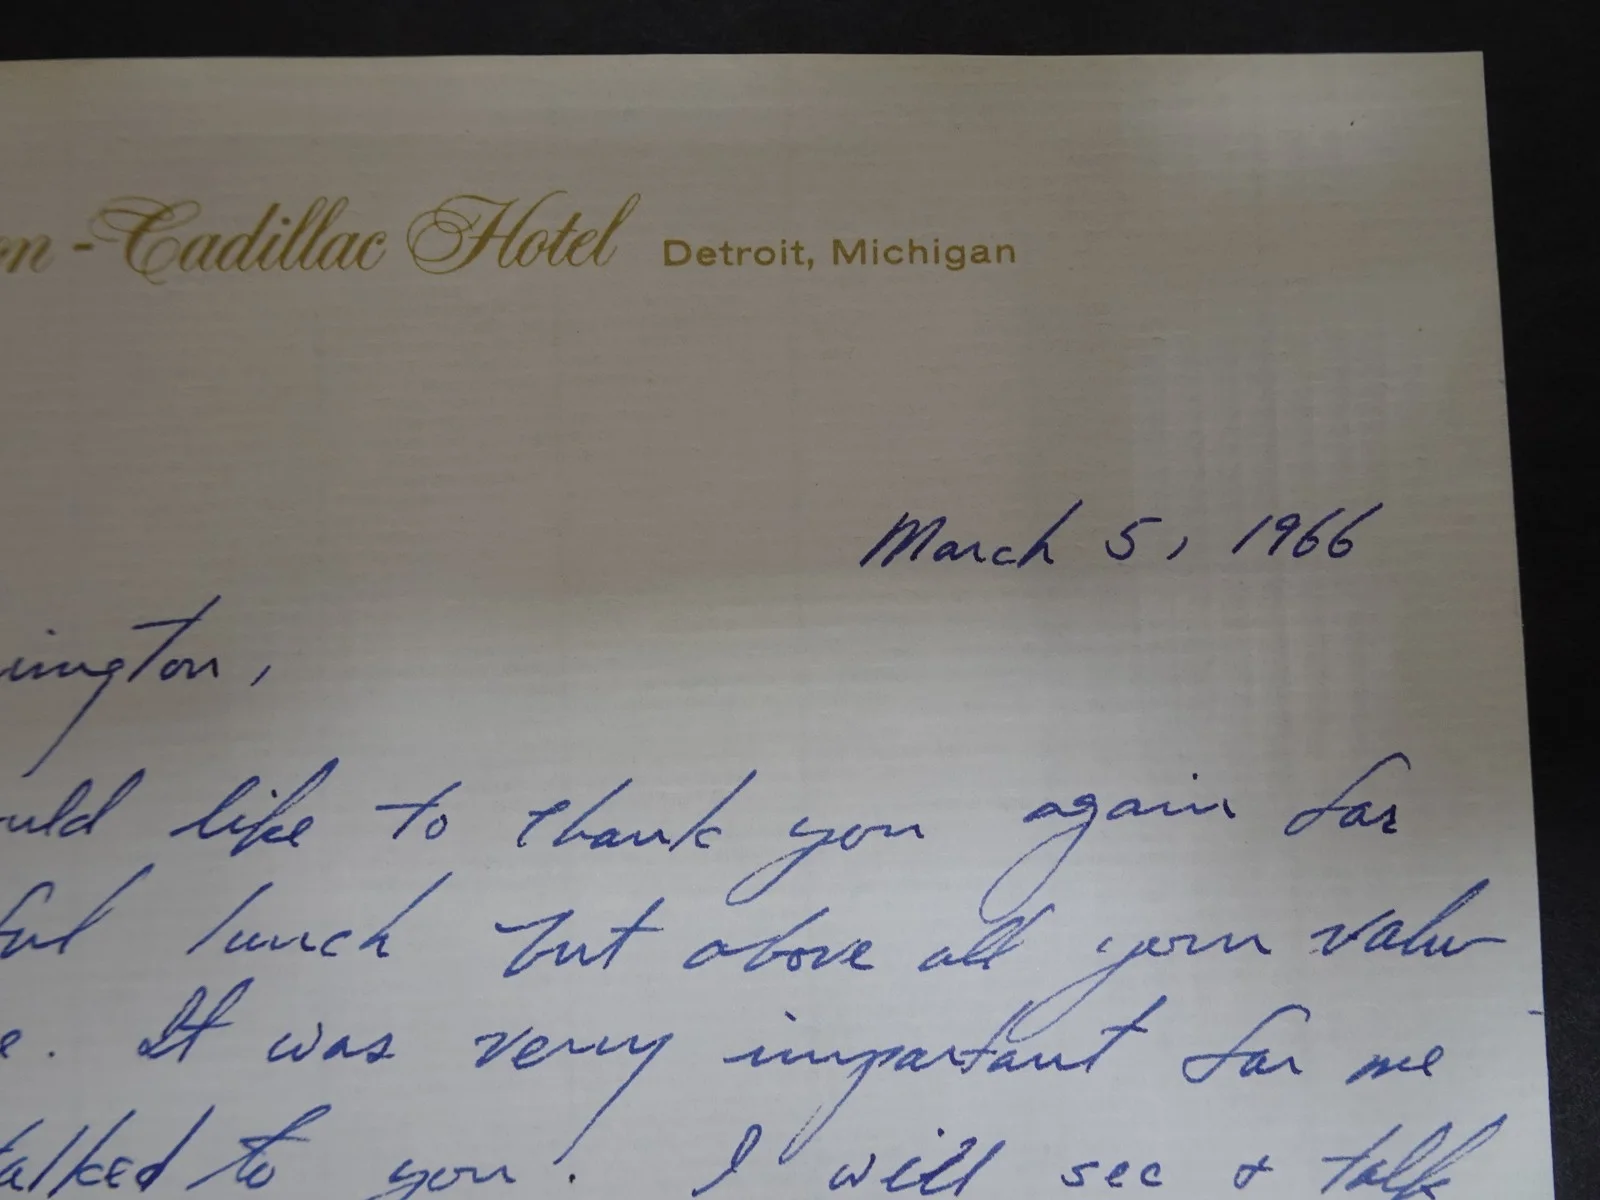 on-Cadillac Hotel Detroit, Michigan
March 5, 1966
ington,
ould like to thank you again for
ful lunch but above all your valu
e. It was very important for me
talked to you. I will see & talk